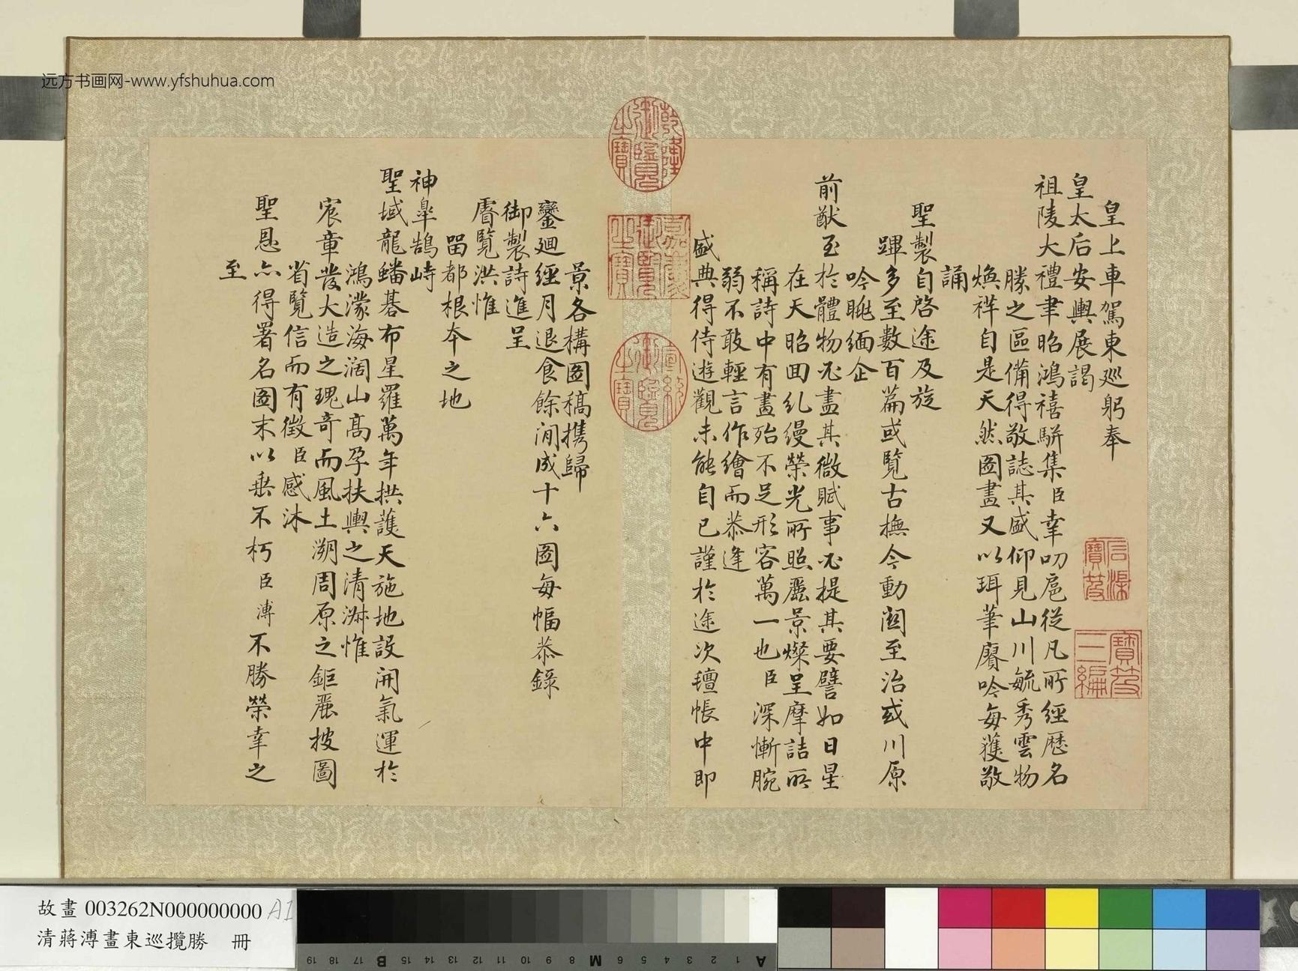 远方书画网-www.yfshuhua.com
皇上車駕東巡躬奉
皇太后安輿展謁
祖陵大禮聿昭鴻禧駢集臣幸叨扈從凡所經歷名
勝之區備得敬誌其盛仰見山川毓秀雲物
煥祥自是天然圖畫又以珥筆賡吟每獲敬
誦
聖製自啓途及旋
蹕多至數百篇或覽古撫今動關至治或川原
吟眺緬企
前猷至於體物必盡其微賦事必提其要譬如日星
在天昭回糺縵榮光所照麗景燦呈摩詰所
稱詩中有畫殆不足形容萬一也臣深慚腕
弱不敢輕言作繪而恭逢
盛典得侍遊觀未能自已謹於途次氊帳中即
景各構圖稿携歸
鑾迴經月退食餘閒成十六圖每幅恭錄
御製詩進呈
睿覽洪惟
留都根本之地
神臯鵠峙
聖域龍蟠碁布星羅萬年拱護天施地設開氣運於
鴻濛海濶山高孕扶輿之清淑惟
宸章發大造之瑰奇而風土溯周原之鉅麗披圖
省覽信而有徵臣感沐
聖恩亦得署名圖末以垂不朽臣溥不勝榮幸之
至
乾隆御覽之寶
嘉慶御覽之寶
宣統御覽之寶
石渠寶笈
寶笈三編
故畫 003262N000000000 AI
清蔣溥畫東巡攬勝 冊
19 18 17 16 15 14 13 12 11 10 9 8 7 6 5 4 3 2 1
B M A